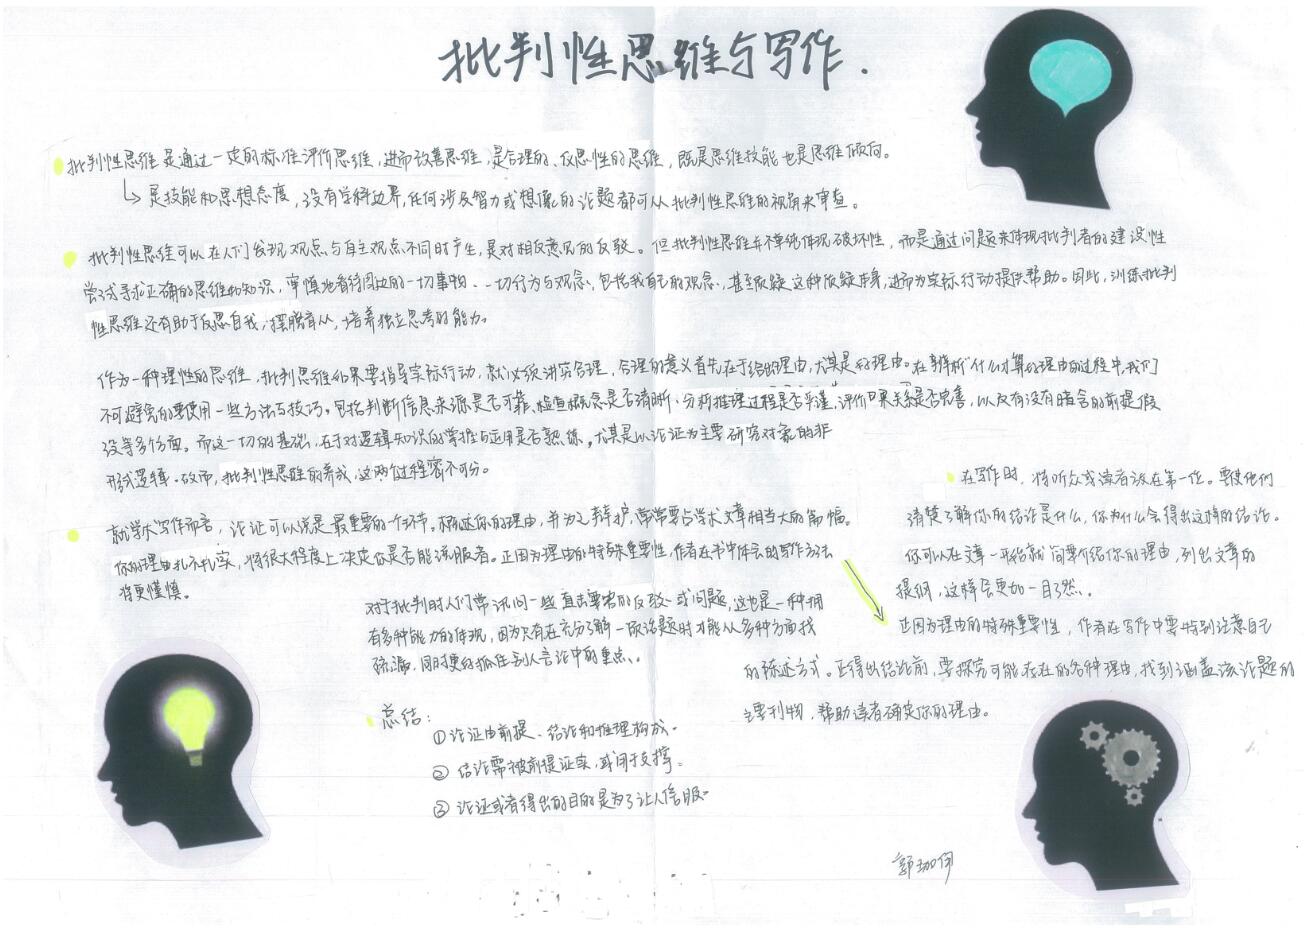 批判性思维与写作.
批判性思维是通过一定的标准评价思维，进而改善思维，是合理的、反思性的思维，既是思维技能也是思维倾向。
↳ 是技能和思想态度，没有学科边界，任何涉及智力或想像的论题都可从批判性思维的视角来审查。
批判性思维可以在人们发现观点与自主观点不同时产生，是对相反意见的反驳。但批判性思维并不单纯体现破坏性，而是通过问题来体现批判者的建设性
尝试寻求正确的思维和知识，审慎地看待周边的一切事物、一切行为与观念，包括我自己的观念，甚至质疑这种质疑本身，进而为实际行动提供帮助。因此，训练批判
性思维还有助于反思自我，摆脱盲从，培养独立思考的能力。
作为一种理性的思维，批判思维如果要指导实际行动，就必须讲究合理，合理的意义首先在于给出理由，尤其是好理由。在辨析什么才算好理由的过程中，我们
不可避免的要使用一些方法与技巧。包括判断信息来源是否可靠、检查概念是否清晰、分析推理过程是否严谨，评价因果关系是否完善，以及有没有暗含的前提假
设等多个方面。而这一切的基础，在于对逻辑知识的掌握与运用是否熟练，尤其是以论证为主要研究对象的非
形式逻辑。故而，批判性思维的养成，这两个过程密不可分。
就学术写作而言，论证可以说是最重要的一个环节。陈述你的理由，并为之辩护，常常要占学术文章相当大的篇幅。
你的理由扎不扎实，将很大程度上决定你是否能说服者。正因为理由的特殊重要性，作者在书中体会的写作方法
将更慬慎。
对于批判时人们常讯问一些直击要害的反驳或问题，这也是一种拥
有多种能力的体现，因为只有在充分了解一项论题时才能从多种方面找
疏漏，同时更好抓住别人言论中的重点。
总结：
① 论证由前提、结论和推理构成。
② 结论需被前提证实，或用于支撑。
③ 论证或者得出的目的是为了让人信服。
在写作时，将听众或读者放在第一位。要使他们
清楚了解你的结论是什么，你为什么会得出这样的结论。
你可以在文章一开始就简单介绍你的理由，列出文章的
提纲，这样会更加一目了然。
正因为理由的特殊重要性，作者在写作中要特别注意自己
的陈述方式。在得出结论前，要探究可能存在的各种理由，找到涵盖该论题的
主要刊物，帮助读者确定你的理由。